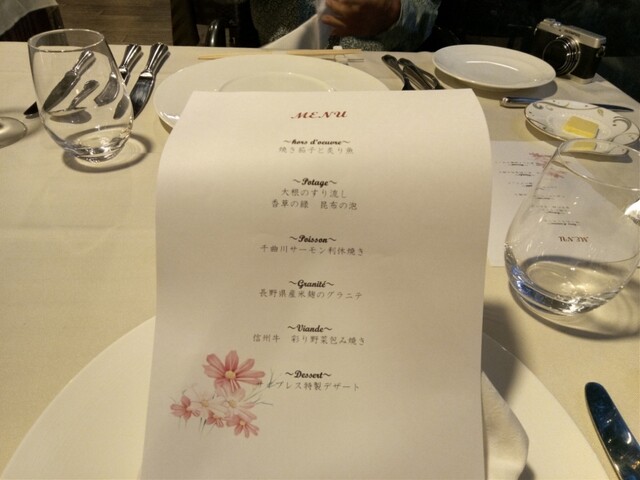 MENU
～hors d'oeuvre～
焼き茄子と炙り魚
～Potage～
大根のすり流し
香草の緑　昆布の泡
～Poisson～
千曲川サーモン利休焼き
～Granité～
長野県産米麹のグラニテ
～Viande～
信州牛　彩り野菜包み焼き
～Dessert～
ブレス特製デザート
MENU